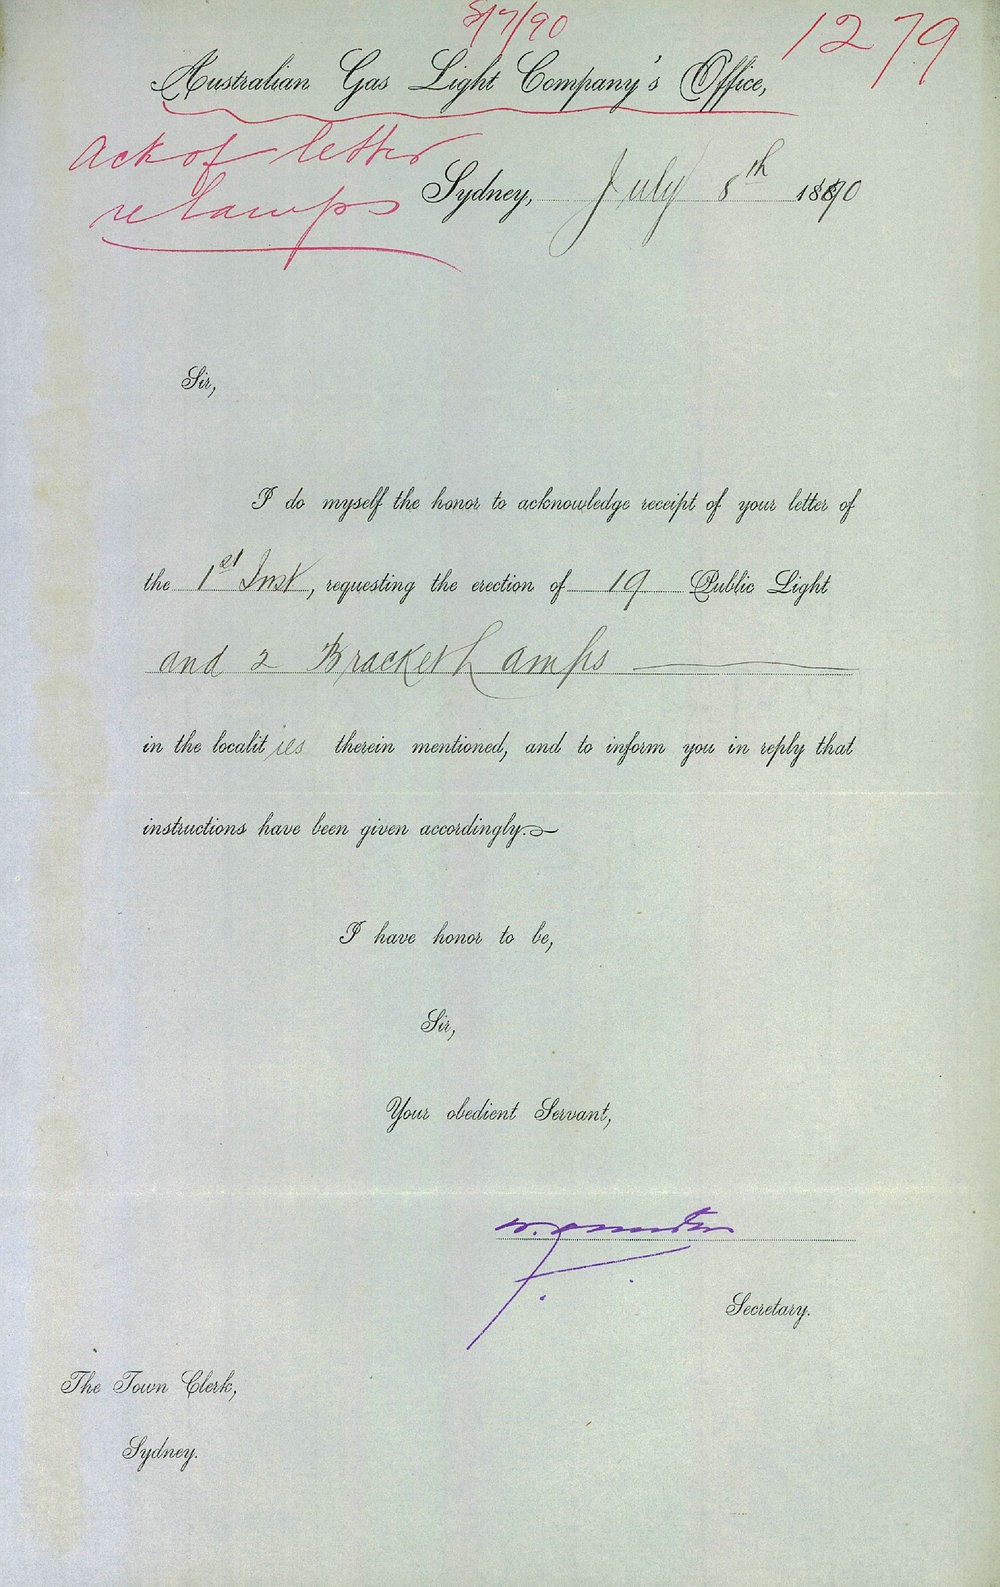 8/7/90
1279
Australian Gas Light Company's Office,
Ack of letter
re lamps
Sydney, July 8th 1890
Sir,
I do myself the honor to acknowledge receipt of your letter of
the 1st Inst, requesting the erection of 19 Public Light
and 2 Bracket Lamps
in the localities therein mentioned, and to inform you in reply that
instructions have been given accordingly.
I have honor to be,
Sir,
Your obedient Servant,
Secretary.
The Town Clerk,
Sydney.